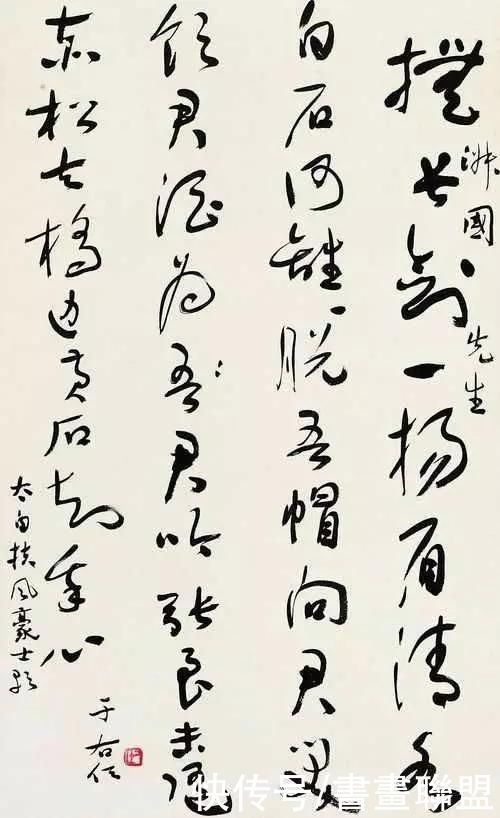 國先生
撫長劍一揚眉清水
白石何離〻脫吾帽向君笑
飲君酒為吾君吟張良未逐
赤松去橋邊黃石知我心
太白扶風豪士歌
于右任
快传号/書畫聯盟